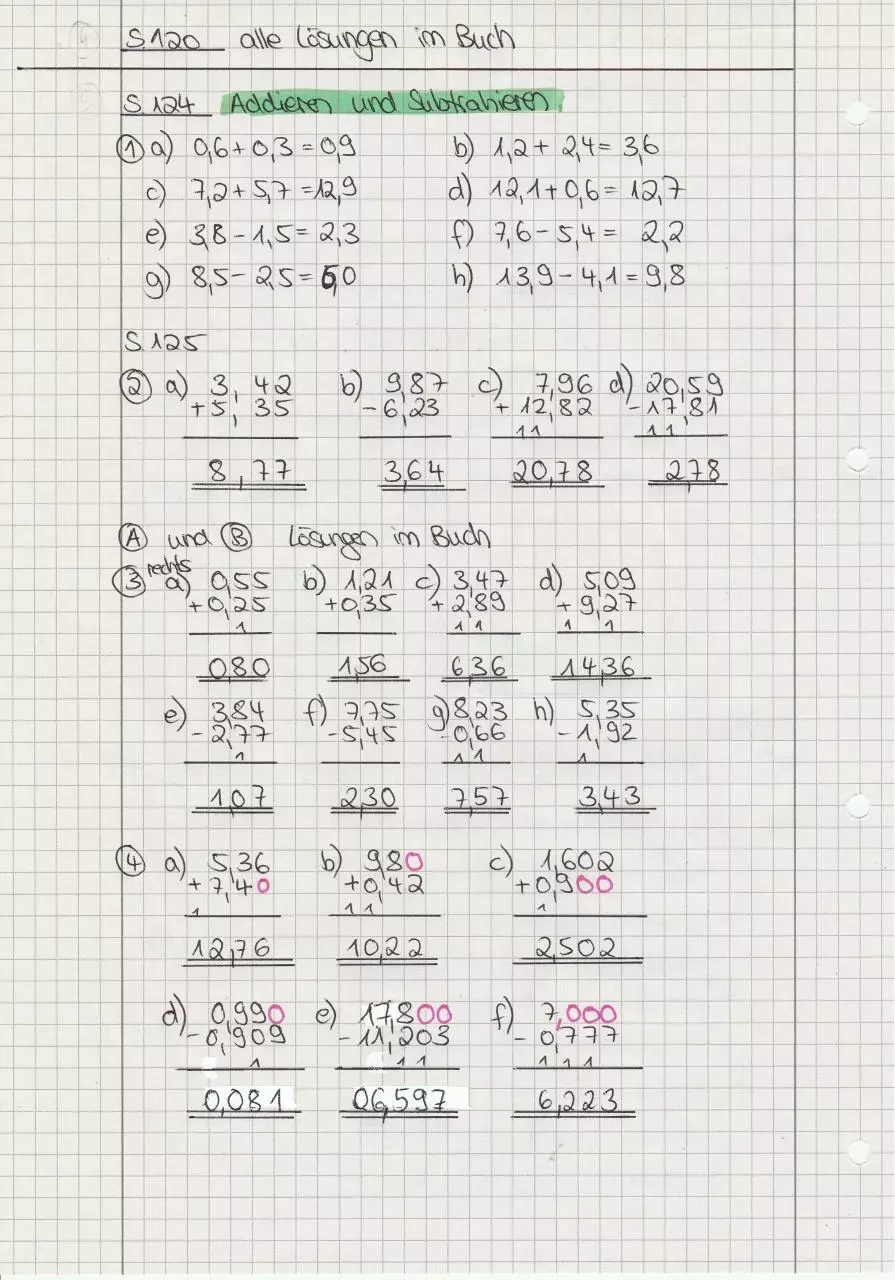 S.120 alle Lösungen im Buch
S.124 Addieren und Subtrahieren
① a) 0,6 + 0,3 = 0,9 b) 1,2 + 2,4 = 3,6
c) 7,2 + 5,7 = 12,9 d) 12,1 + 0,6 = 12,7
e) 3,8 - 1,5 = 2,3 f) 7,6 - 5,4 = 2,2
g) 8,5 - 2,5 = 6,0 h) 13,9 - 4,1 = 9,8
S.125
② a) 3,42 b) 9,87 c) 7,96 d) 20,59
+5,35 -6,23 +12,82 -17,81
11 11
8,77 3,64 20,78 2,78
Ⓐ und Ⓑ Lösungen im Buch
rechts
③ a) 0,55 b) 1,21 c) 3,47 d) 5,09
+0,25 +0,35 +2,89 +9,27
1 11 1 1
0,80 1,56 6,36 14,36
e) 3,84 f) 7,75 g) 8,23 h) 5,35
-2,77 -5,45 -0,66 -1,92
1 11 1
1,07 2,30 7,57 3,43
④ a) 5,36 b) 9,80 c) 1,602
+7,40 +0,42 +0,900
1 11 1
12,76 10,22 2,502
d) 0,990 e) 17,800 f) 7,000
-0,909 -11,203 -0,777
1 11 111
0,081 06,597 6,223